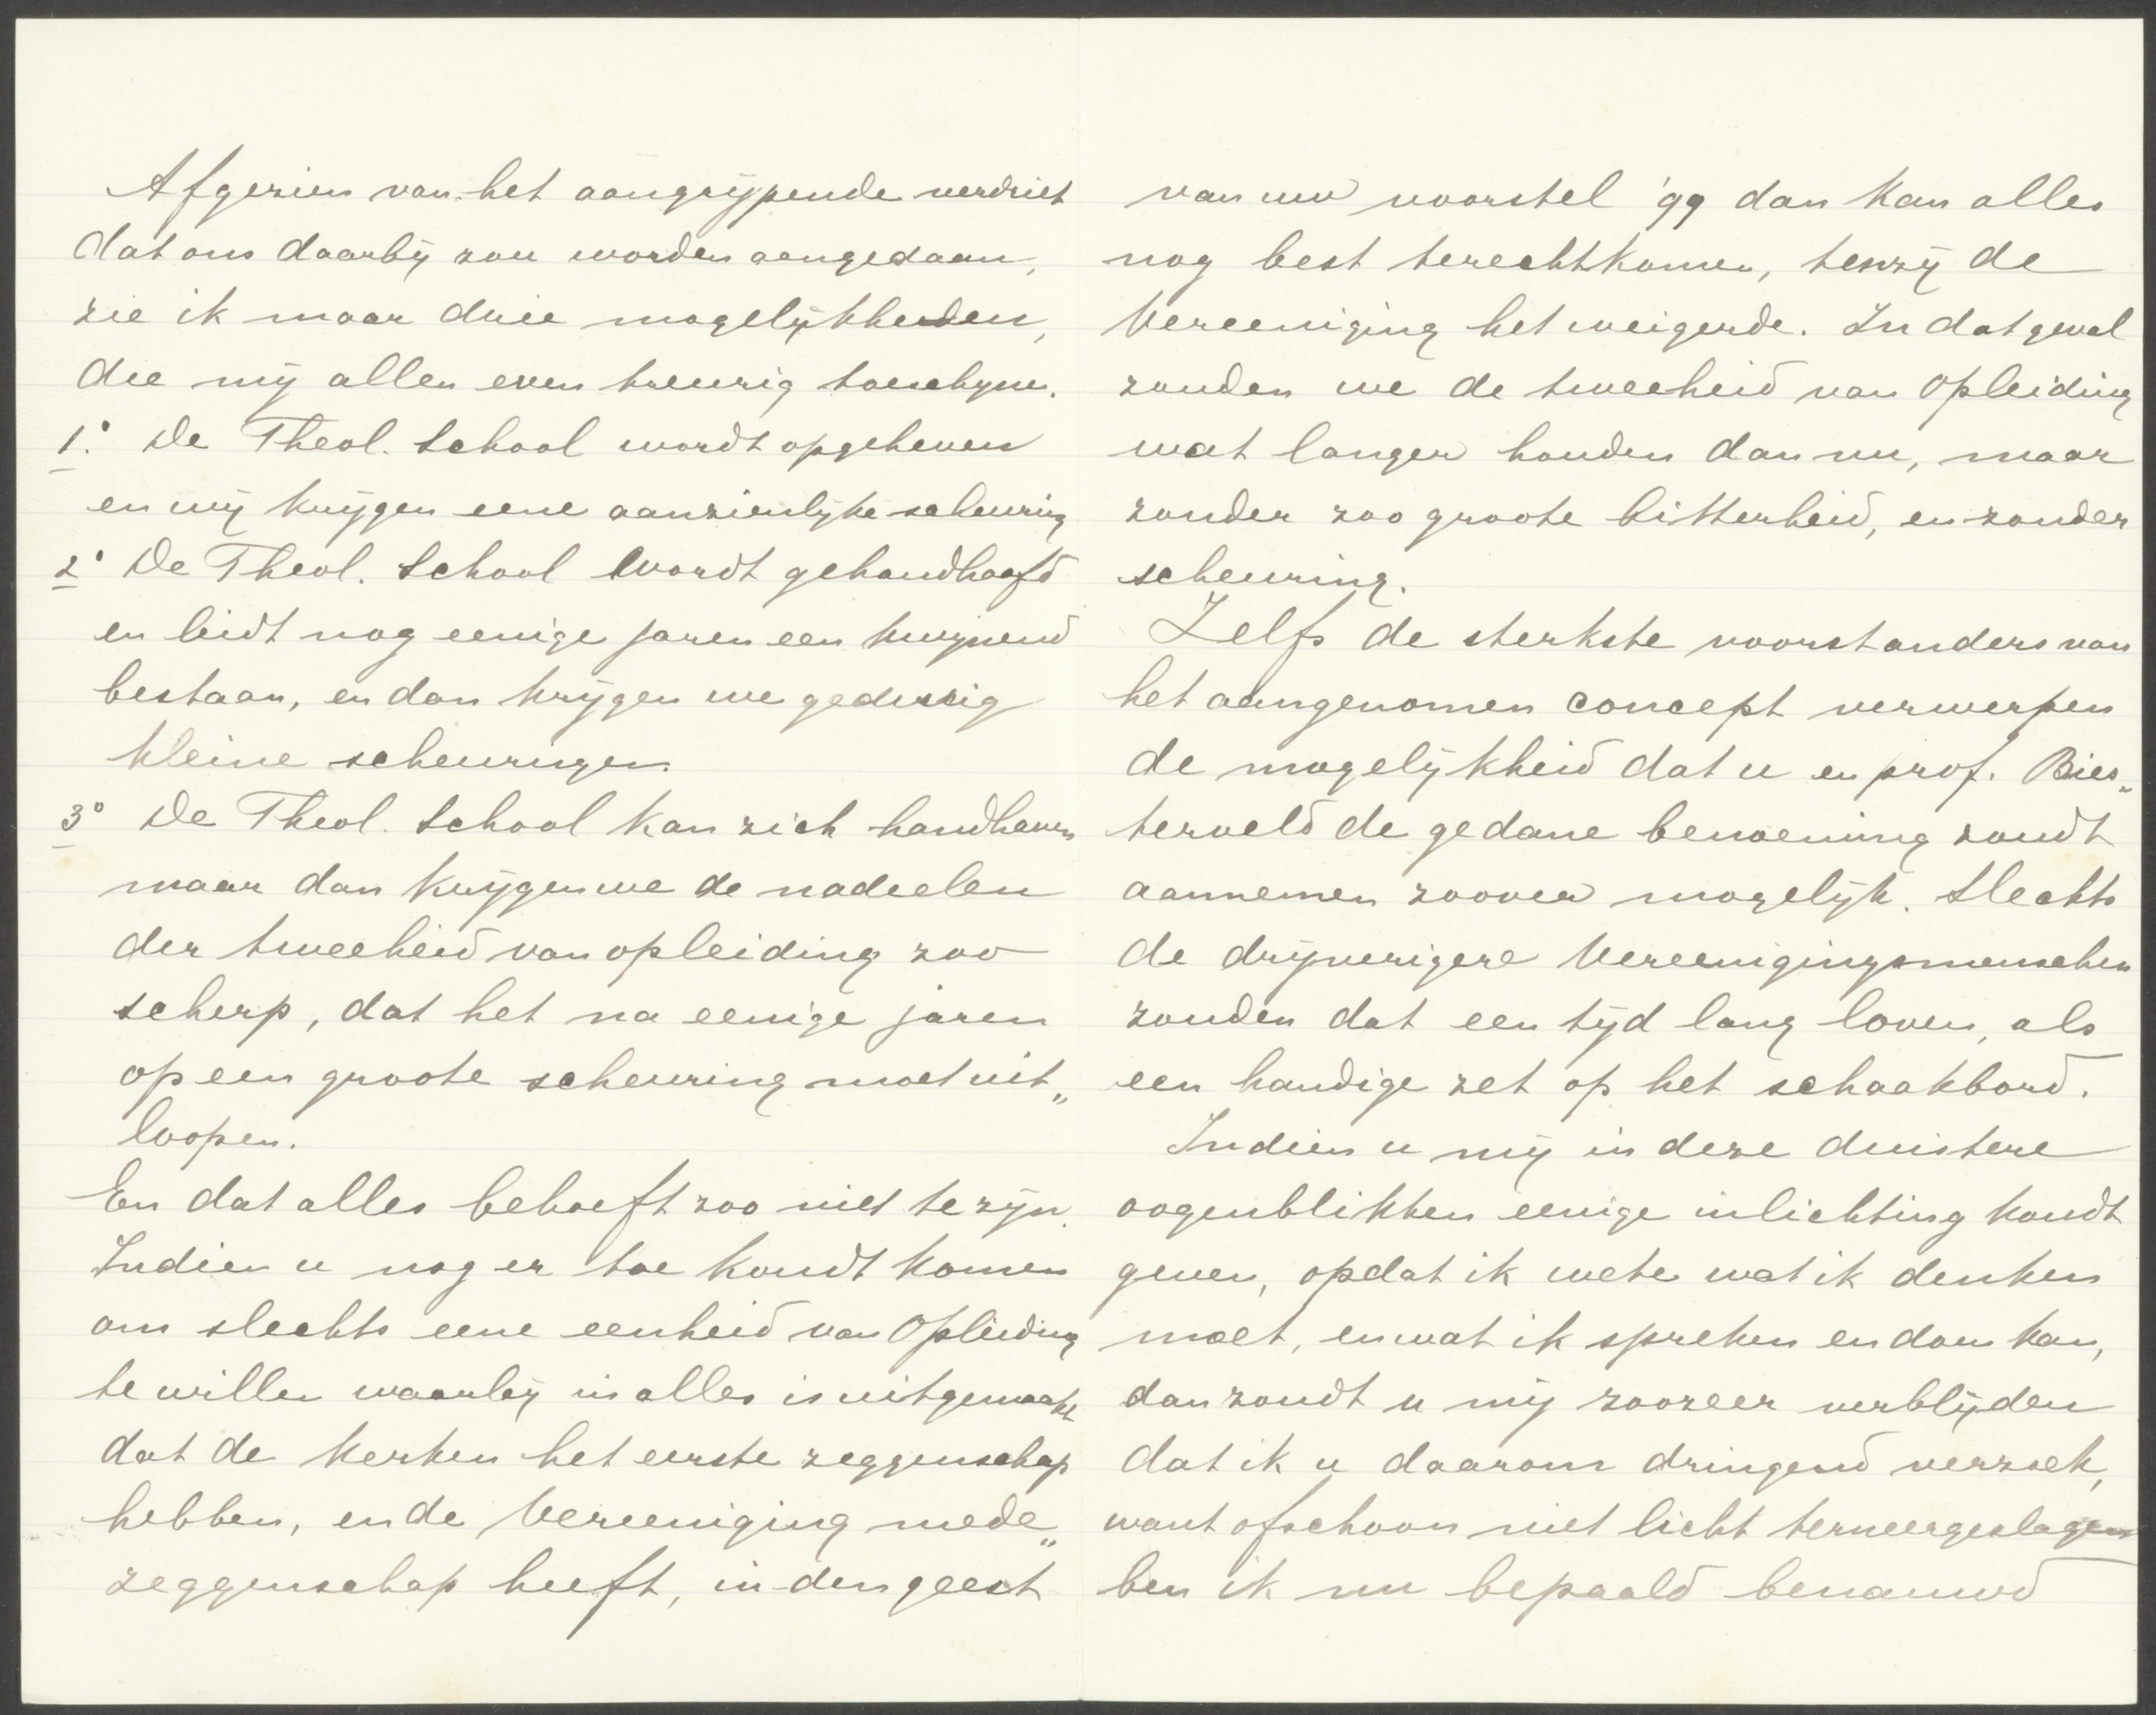 Afgezien van het aangrijpende verdriet
dat ons daarbij zou worden aangedaan,
zie ik maar drie mogelijkheden,
die mij allen even treurig toeschijnen.
1.° De Theol. School wordt opgeheven
en wij krijgen eene aanzienlijke scheuring
2° De Theol. School wordt gehandhaafd
en leidt nog eenige jaren een kwijnend
bestaan, en dan krijgen we gedurig
kleine scheuringen.
3° De Theol. School kan zich handhaven
maar dan krijgen we de nadeelen
der tweeheid van opleiding zoo
scherp, dat het na eenige jaren
op een groote scheuring moet uit„
loopen.
En dat alles behoeft zoo niet te zijn.
Indien u nog er toe kondt komen
om slechts eene eenheid van Opleiding
te willen waarbij in alles is uitgemaakt
dat de Kerken het eerste zeggenschap
hebben, en de Vereeniging mede„
zeggenschap heeft, in den geest
van uw voorstel '99 dan kan alles
nog best terechtkomen, tenzij de
Vereeniging het weigerde. In dat geval
zouden we de tweeheid van Opleiding
wat langer houden dan nu, maar
zonder zoo groote bitterheid, en zonder
scheuring.
Zelfs de sterkste voorstanders van
het aangenomen concept verwerpen
de mogelijkheid dat u en prof. Bies„
terveld de gedane benoeming zoudt
aannemen zoover mogelijk. Slechts
de drijverigere Vereenigingsmenschen
zouden dat een tijd lang loven, als
een handige zet op het schaakbord.
Indien u mij in deze duistere
oogenblikken eenige inlichting kondt
geven, opdat ik wete wat ik denken
moet, en wat ik spreken en doen kan,
dan zoudt u mij zoozeer verblijden
dat ik u daarom dringend verzoek,
want ofschoon niet licht terneergeslagen
ben ik nu bepaald benauwd